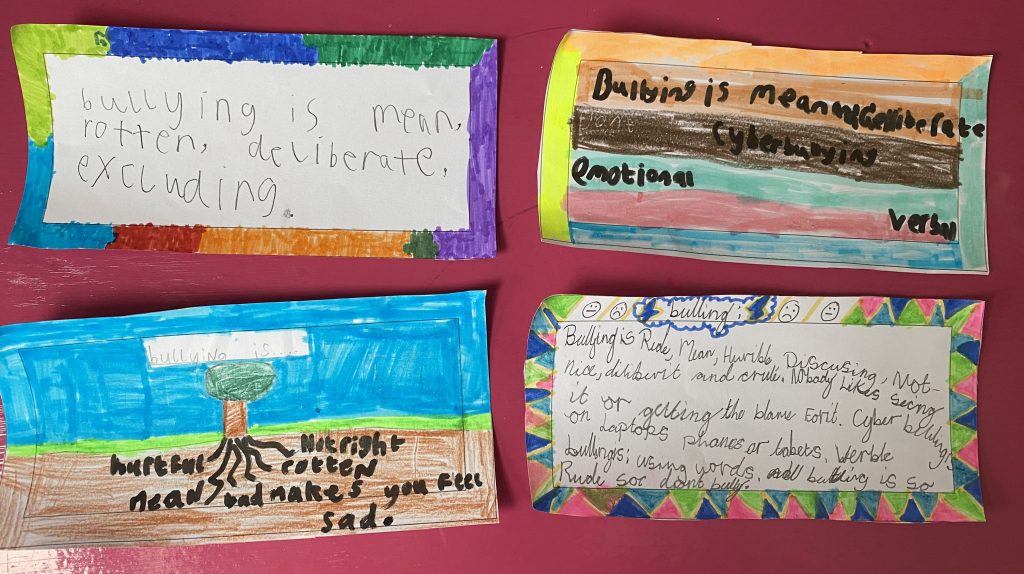 bullying is mean,
rotten, deliberate,
excluding.
Bullying is mean
Cyberbullying
emotional
Verbal
bullying is....
hurtful Not right
rotten
mean bad makes you feel
sad.
bulling :
Bullying is Rude, Mean, Hurible, Discusing, Not-
Nice, diliburit and crule. Nobody Likes seeing
it or getting the blame Forit. Cyber bulling is
on Laptops phones or tabets. Verble
bullings: using words. all bulling is so
Rude sor dont bully.